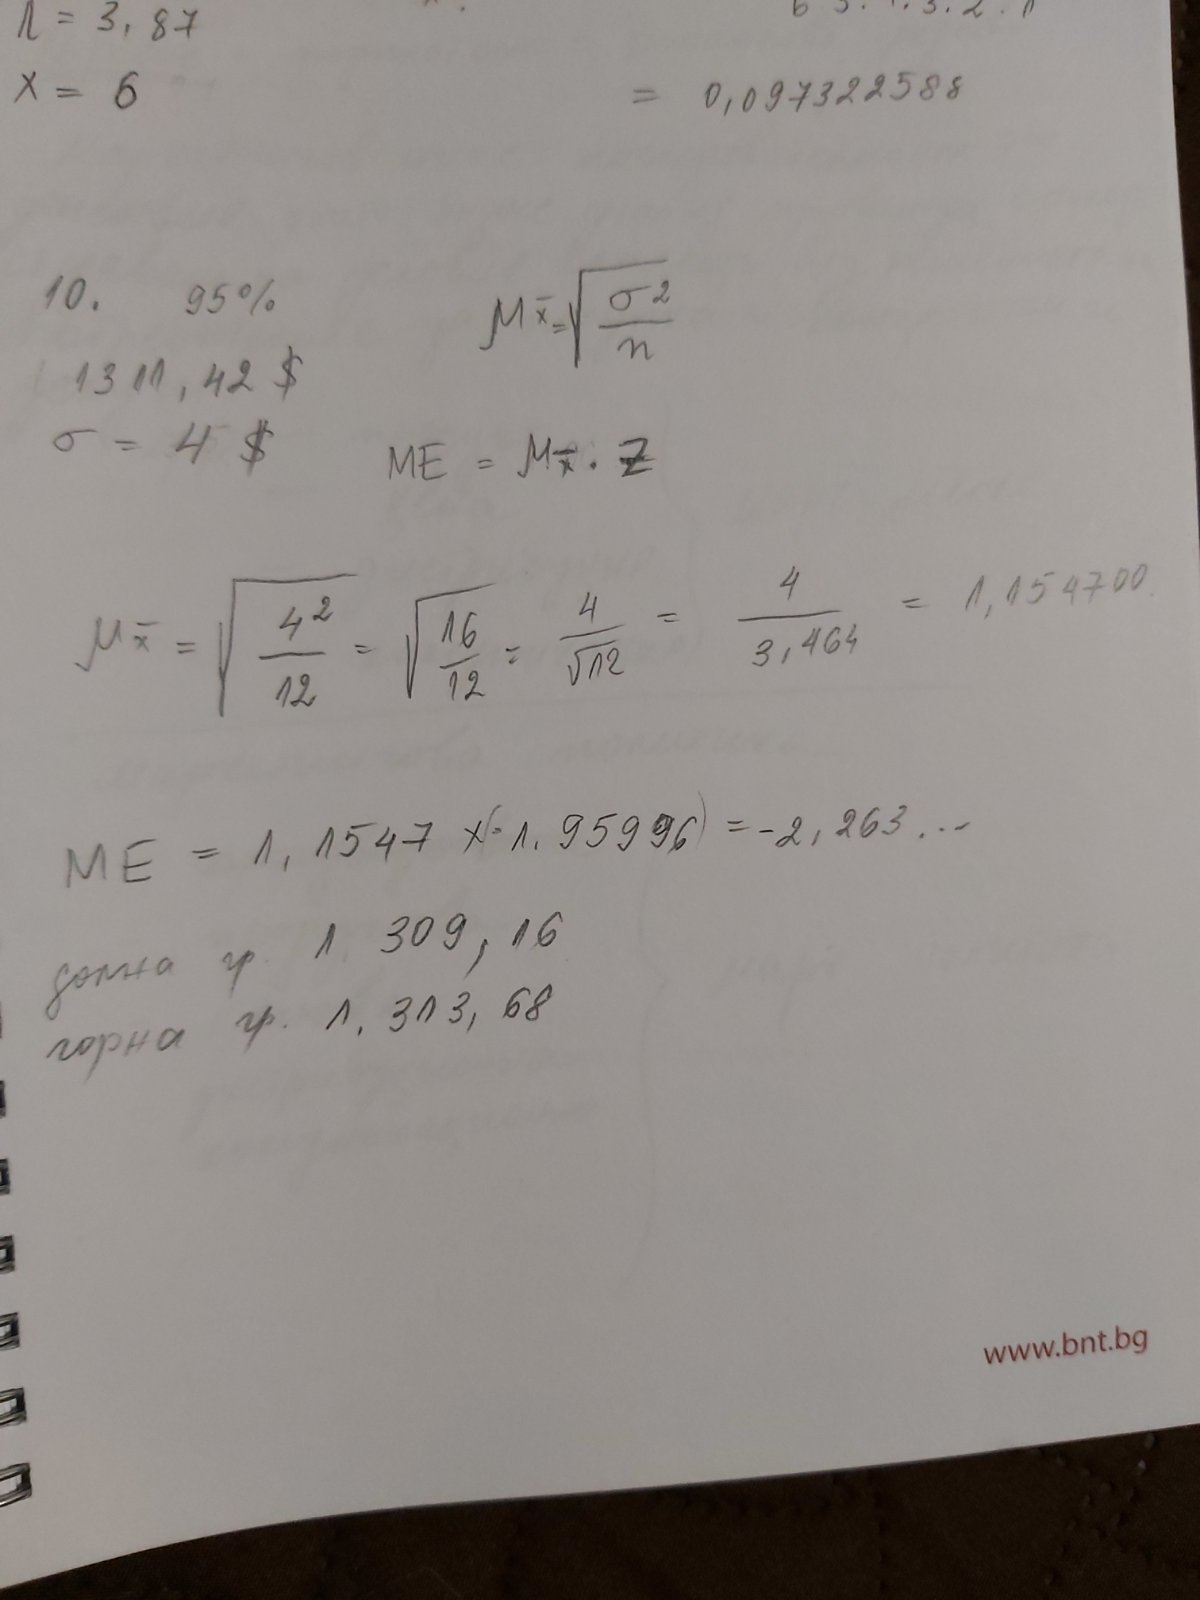 λ = 3,87
x = 6
= 0,097322588
10. 95%
μx̄ = √(σ²/n)
1311,42 $
σ = 4 $
ME = μx̄ · Z
μx̄ = √(4²/12) = √(16/12) = 4/√12 = 4/3,464 = 1,154700
ME = 1,1547 x(-1.95996) = -2,263...
долна гр. 1. 309, 16
горна гр. 1. 313, 68
www.bnt.bg